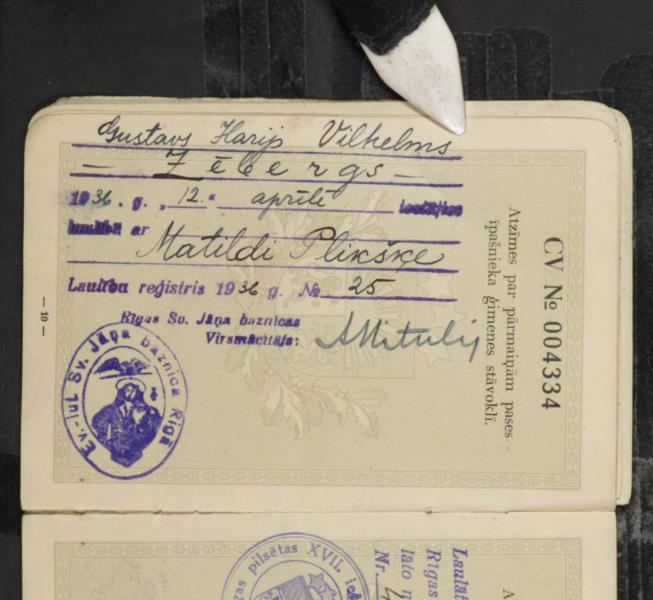 Gustavs Harijs Vilhelms
— Zēbergs —
1936. g. „12." aprīlī iestājies
laulībā ar
Matildi Plikšķe
Laulību reģistris 1936 g. № 25
Rīgas Sv. Jāņa baznīcas
Virsmācītājs:
Ev.-lut. Sv. Jāņa baznīca Rīgā
Atzīmes par pārmaiņām pases
īpašnieka ģimenes stāvoklī.
CV № 004334
— 10 —
pilsētas XVII.
Laulāt
Rīgas
lāto
Nr.